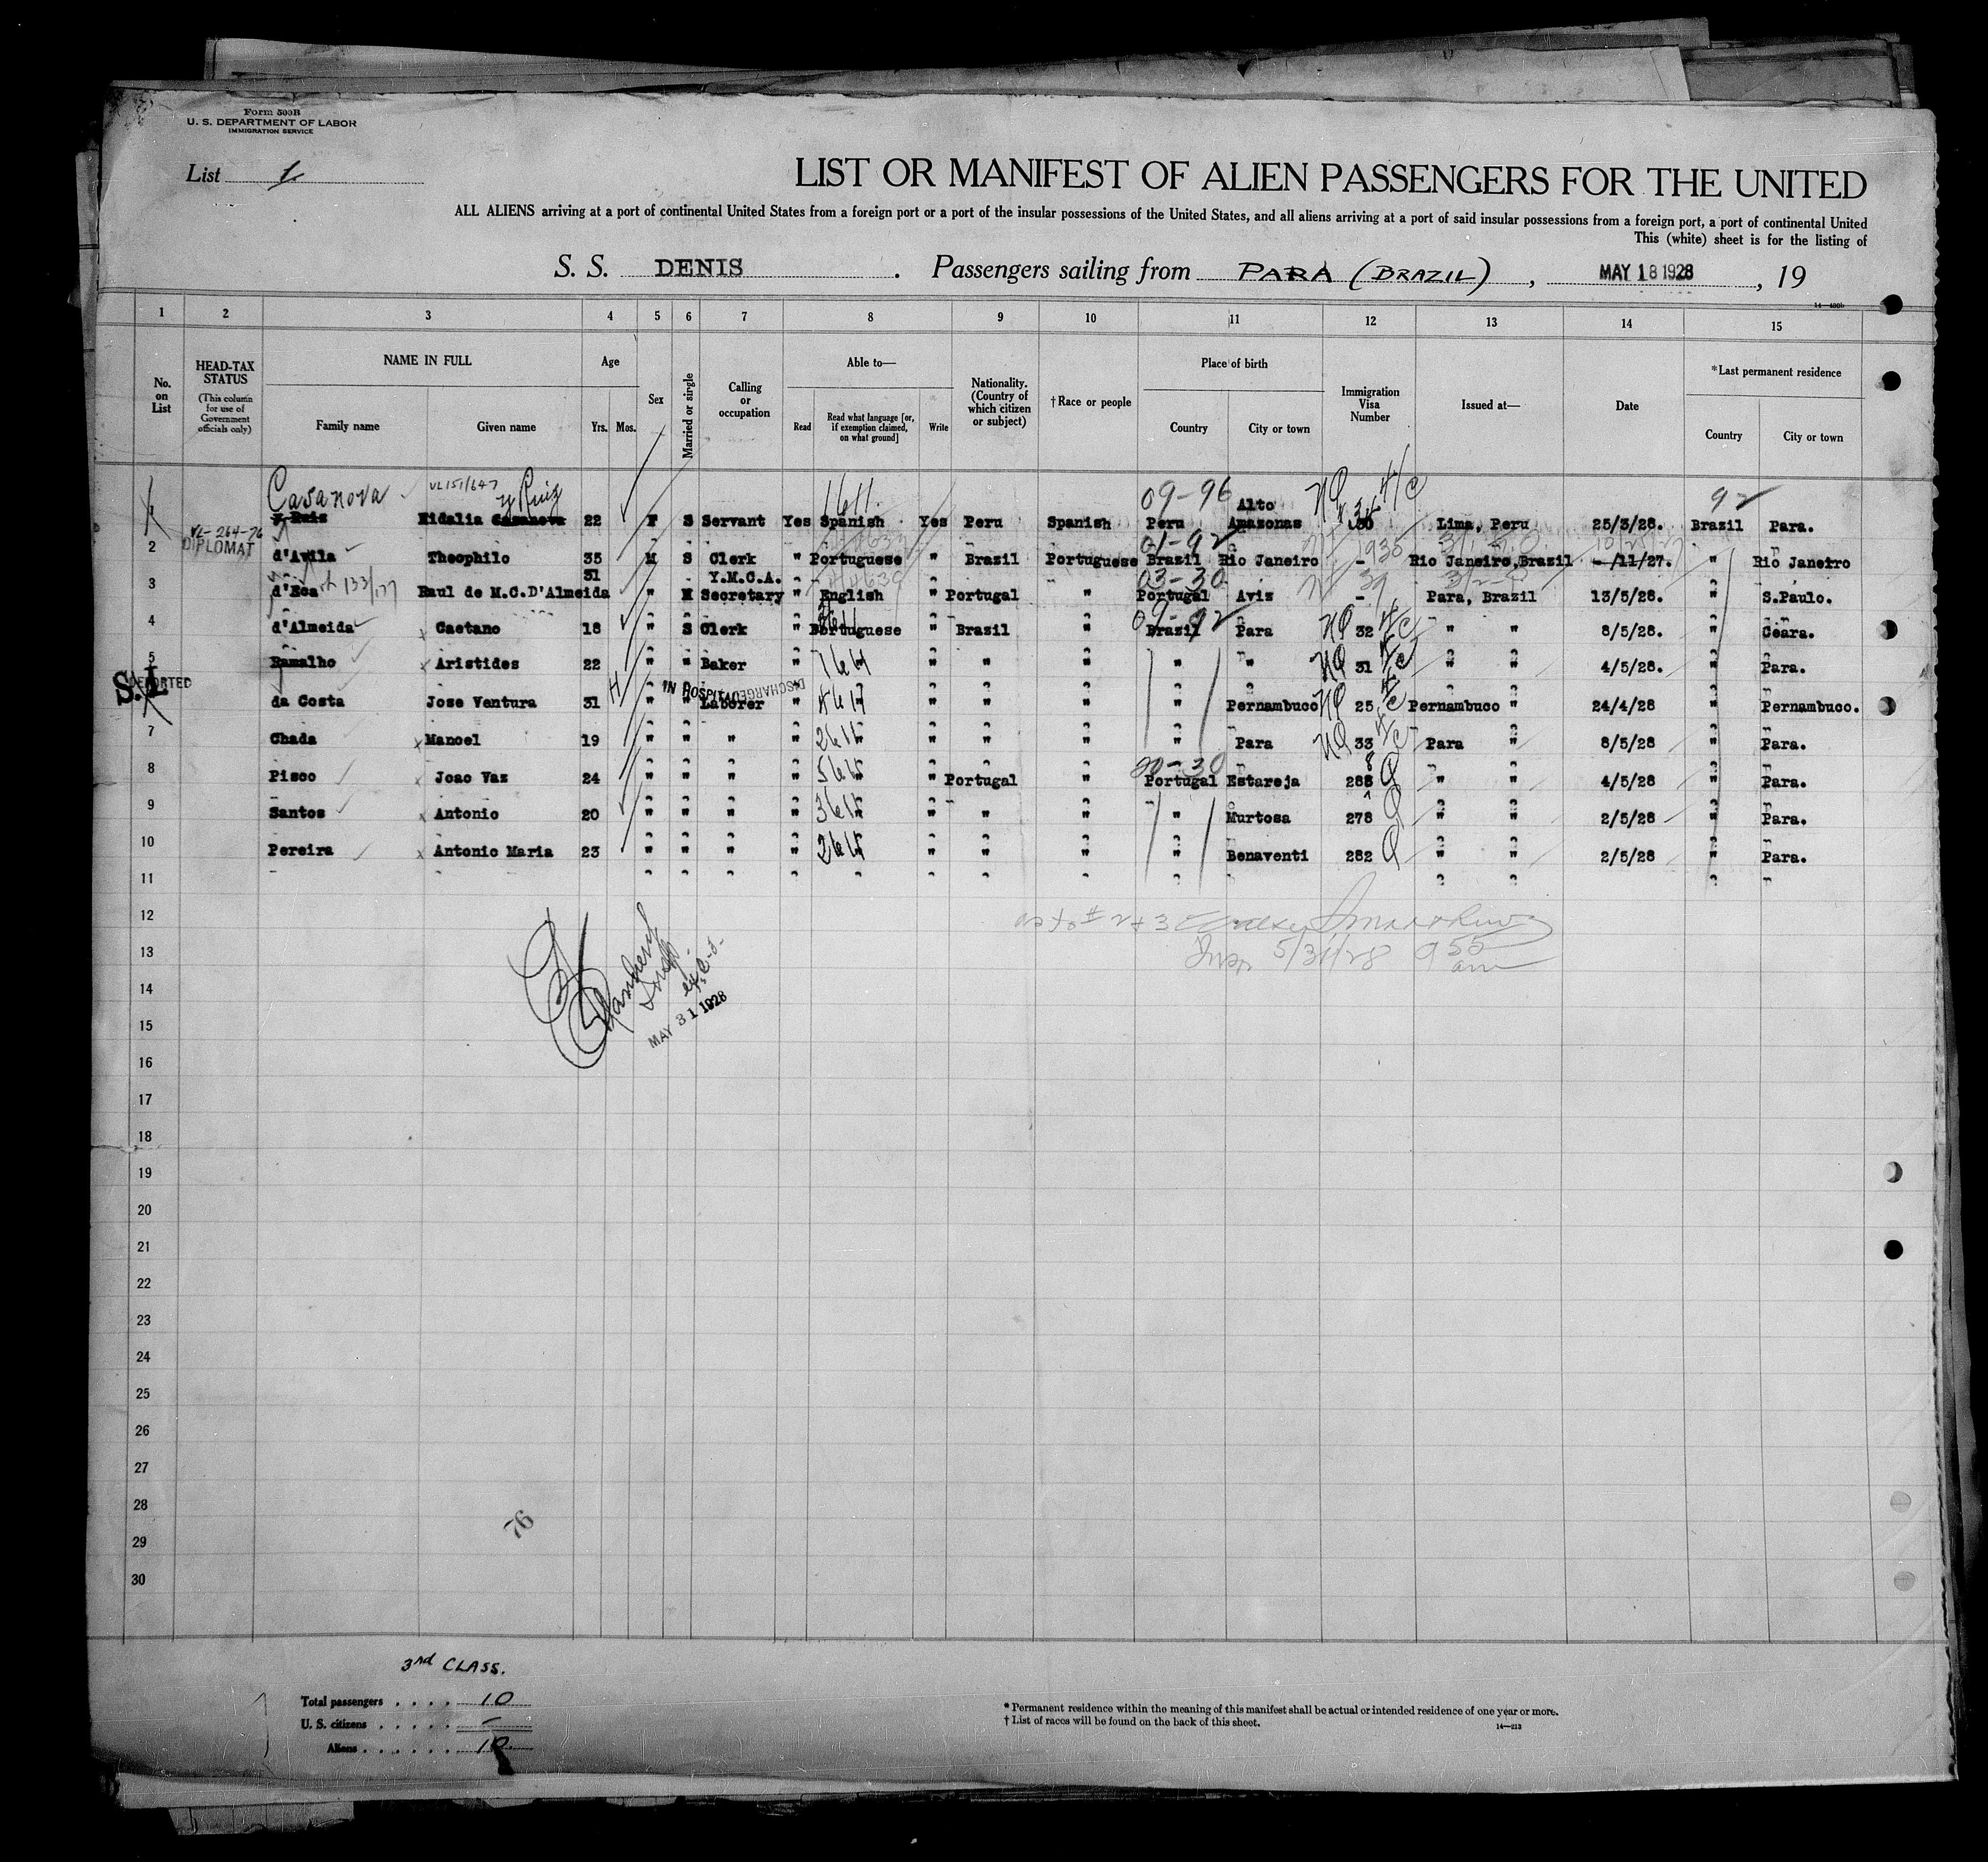 Form 500B
U. S. DEPARTMENT OF LABOR
IMMIGRATION SERVICE
List 1
LIST OR MANIFEST OF ALIEN PASSENGERS FOR THE UNITED
ALL ALIENS arriving at a port of continental United States from a foreign port or a port of the insular possessions of the United States, and all aliens arriving at a port of said insular possessions from a foreign port, a port of continental United
This (white) sheet is for the listing of
S. S. DENIS . Passengers sailing from PARA (BRAZIL) , MAY 18 1928 , 19
1 2 3 4 5 6 7 8 9 10 11 12 13 14 15
No. on List
HEAD-TAX STATUS
(This column for use of Government officials only)
NAME IN FULL
Family name Given name
Age
Yrs. Mos.
Sex
Married or single
Calling or occupation
Able to—
Read
Read what language [or, if exemption claimed, on what ground]
Write
Nationality. (Country of which citizen or subject)
† Race or people
Place of birth
Country City or town
Immigration Visa Number
Issued at—
Date
* Last permanent residence
Country City or town
Casanova y Ruiz 09-96 Alto NQ 4/c 92
1 y Ruiz Nidalia Casanova 22 F S Servant Yes Spanish Yes Peru Spanish Peru Amazonas 30 Lima, Peru 25/3/28. Brazil Para.
VL-264-76 01-92
2 DIPLOMAT d'Avila Theophilo 35 M S Clerk " Portuguese " Brazil Portuguese Brazil Rio Janeiro - Rio Janeiro, Brazil - /11/27. " Rio Janeiro
31 Y.M.C.A. 03-30
3 d'Eca Raul de M.C.D'Almeida " M Secretary " English " Portugal " Portugal Aviz - Para, Brazil 13/5/28. " S.Paulo.
4 d'Almeida Caetano 18 " S Clerk " Portuguese " Brazil " Brazil Para NQ 32 4/c " " 8/5/28. " Ceara.
5 Ramalho Aristides 22 " " Baker " " " " " " NQ 31 4/c " " 4/5/28. " Para.
S.I. DEPORTED
IN HOSPITAL DISCHARGED
da Costa Jose Ventura 31 " " Laborer " " " " " Pernambuco NQ 25 4/c Pernambuco " 24/4/28 " Pernambuco.
7 Chada Manoel 19 " " " " " " " " Para NQ 33 4/c Para " 8/5/28 " Para.
8 Pisco Joao Vaz 24 " " " " " Portugal " Portugal Estareja 288 Q " " 4/5/28 " Para.
9 Santos Antonio 20 " " " " " " " " Murtosa 278 Q " " 2/5/28 " Para.
10 Pereira Antonio Maria 23 " " " " " " " " Benaventi 282 Q " " 2/5/28 " Para.
11
12
as to # 2 + 3
13
Insp 5/31/28 9 55 am
14
MAY 31 1928
15
16
17
18
19
20
21
22
23
24
25
26
27
28
29
76
30
3rd CLASS.
Total passengers . . . . 10
U. S. citizens . . . . . -
Aliens . . . . . . 10
* Permanent residence within the meaning of this manifest shall be actual or intended residence of one year or more.
† List of races will be found on the back of this sheet.
14—213